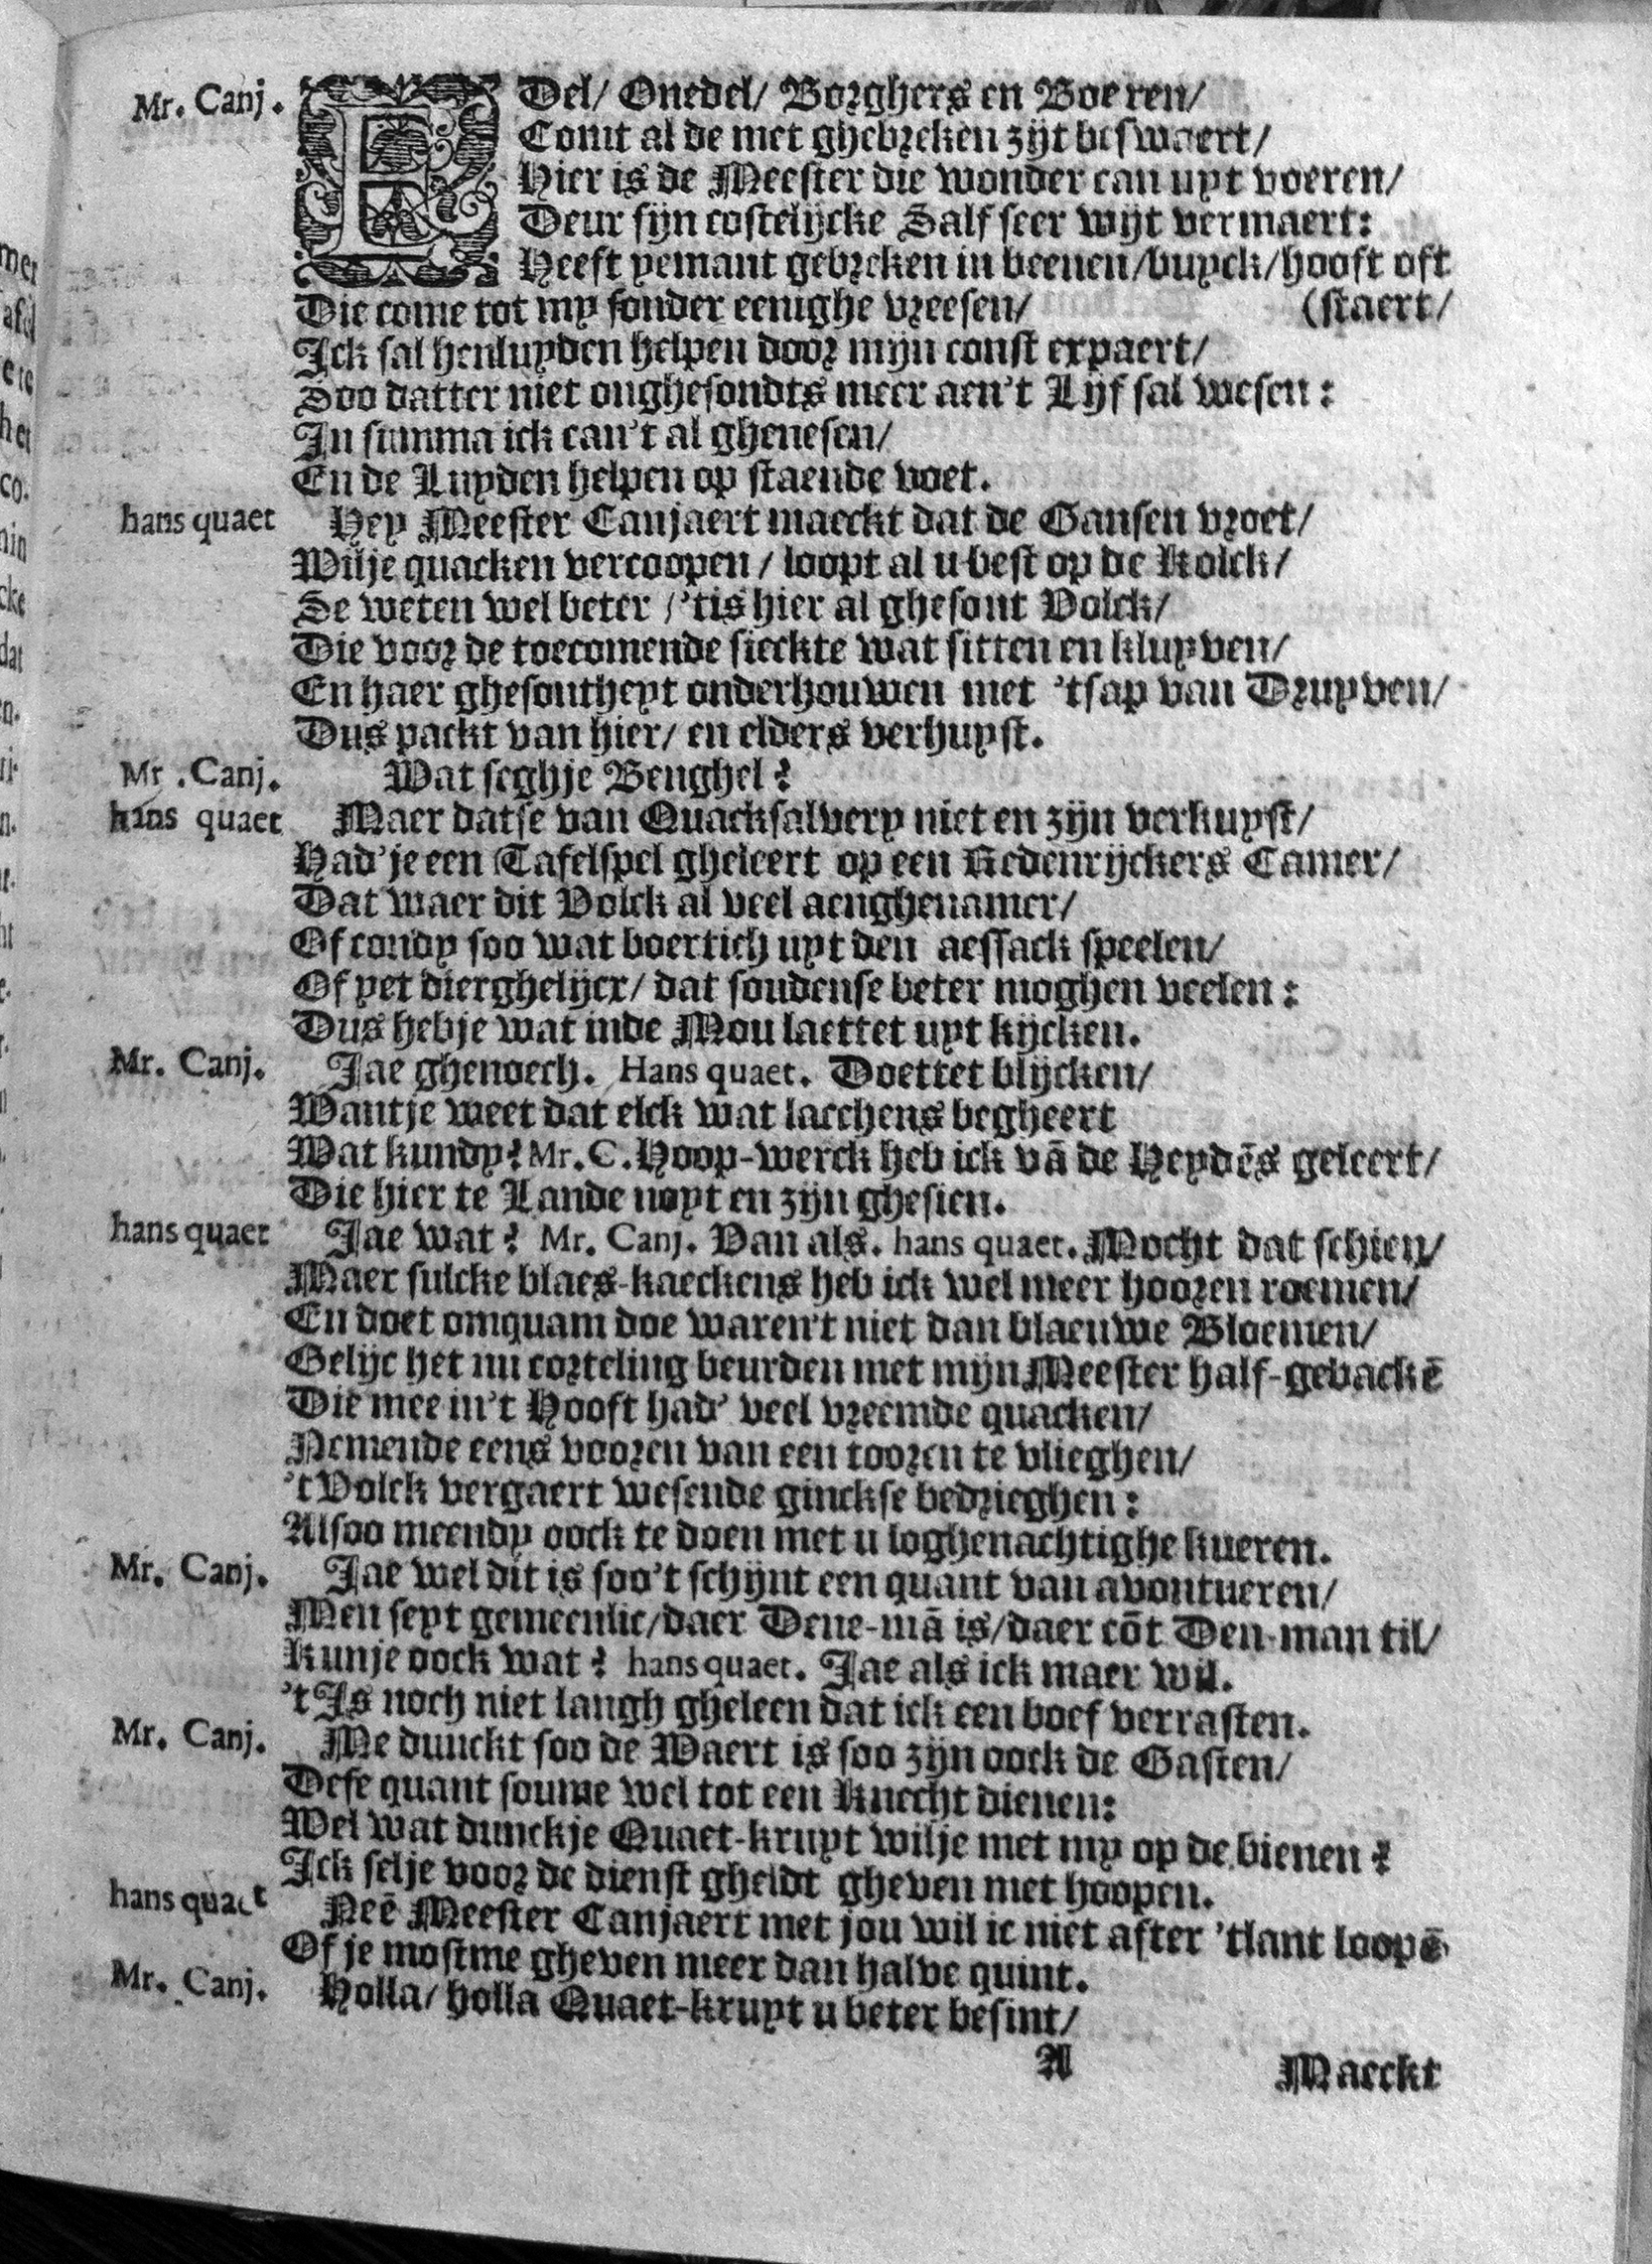 Mr. Canj. EDel/ Onedel/ Borghers en Boeren/
Comt al de met ghebreken zijt beswaert/
Hier is de Meester die wonder can uyt voeren/
Deur sijn costelijcke Salf seer wijt vermaert:
Heeft yemant gebreken in beenen/buyck/hooft oft
Die come tot my sonder eenighe vreesen/ (staert/
Ick sal henluyden helpen door mijn const expaert/
Soo datter niet onghesondts meer aen't Lijf sal wesen:
In summa ick can't al ghenesen/
En de Luyden helpen op staende voet.
hans quaet Hey Meester Canjaert maeckt dat de Gansen vroet/
Wilje quacken vercoopen/ loopt al u best op de Kolck/
Se weten wel beter/ 'tis hier al ghesont Volck/
Die voor de toecomende sieckte wat sitten en kluyven/
En haer ghesontheyt onderhouwen met 'tsap van Druyven/
Dus packt van hier/ en elders verhuyst.
Mr. Canj. Wat seghje Benghel?
hans quaet Maer datse van Quacksalvery niet en zijn verkuyst/
Had'je een Tafelspel gheleert op een Redenrijckers Camer/
Dat waer dit Volck al veel aenghenamer/
Of condy soo wat boertich uyt den aessack speelen/
Of yet dierghelijcx/ dat soudense beter moghen veelen:
Dus hebje wat inde Mou laettet uyt kijcken.
Mr. Canj. Jae ghenoech. Hans quaet. Doettet blijcken/
Wantje weet dat elck wat lacchens begheert
Wat kundy? Mr. C. Hoop-werck heb ick vā de Heydēs geleert/
Die hier te Lande noyt en zijn ghesien.
hans quaet Jae wat? Mr. Canj. Van als. hans quaet. Mocht dat schien/
Maer sulcke blaes-kaeckens heb ick wel meer hooren roemen/
En doet omquam doe waren't niet dan blaeuwe Bloemen/
Gelijc het nu corteling beurden met mijn Meester half-gebackē
Die mee in't Hooft had' veel vreemde quacken/
Nemende eens vooren van een tooren te vlieghen/
't Volck vergaert wesende ginckse bedrieghen:
Alsoo meendy oock te doen met u loghenachtighe kueren.
Mr. Canj. Jae wel dit is soo't schijnt een quant van avontueren/
Men seyt gemeenlic/daer Dene-mā is/daer cōt Den-man til/
Kunje oock wat? hans quaet. Jae als ick maer wil.
't Is noch niet langh gheleen dat ick een boef verrasten.
Mr. Canj. Me dunckt soo de Waert is soo zijn oock de Gasten/
Dese quant soume wel tot een Knecht dienen:
Wel wat dunckje Quaet-kruyt wilje met my op de bienen?
Ick selje voor de dienst gheldt gheven met hoopen.
hans quaet Neē Meester Canjaert met jou wil ic niet after 'tlant loopē
Of je mostme gheven meer dan halve quint.
Mr. Canj. Holla/ holla Quaet-kruyt u beter besint/
A Maeckt